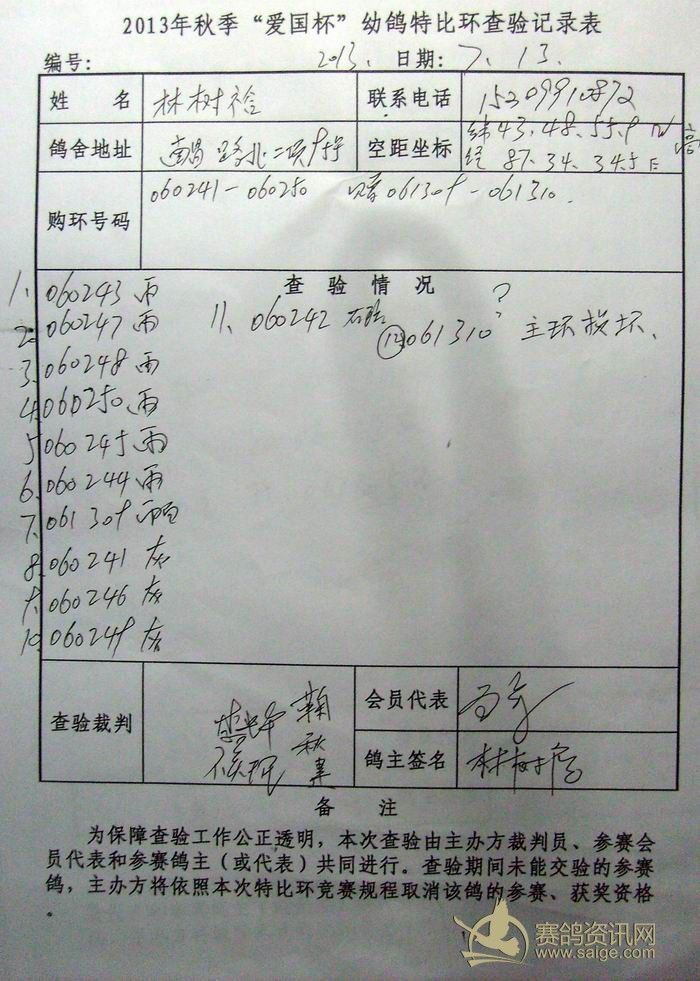 2013年秋季“爱国杯”幼鸽特比环查验记录表
编号: 2013. 日期: 7. 13.
姓 名 林树 联系电话 15209910872
鸽舍地址 南昌路北二项9号 空距坐标 纬43.48.55.9 N 高
经 87.34.34.5 E
购环号码 060241-060250 061309-061310.
查 验 情 况
1、060243 雨
2、060247 雨
11、060242 石 ⑫061310? 主环损坏、
3、060248 雨
4、060250 雨
5、060245 雨
6、060244 雨
7、061309 雨白
8、060241 灰
9、060246 灰
10、060249 灰
查验裁判 鞠秋
会员代表
鸽主签名 林树
备 注
为保障查验工作公正透明，本次查验由主办方裁判员、参赛会
员代表和参赛鸽主（或代表）共同进行。查验期间未能交验的参赛
鸽，主办方将依照本次特比环竞赛规程取消该鸽的参赛、获奖资格
。
赛鸽资讯网
www.saige.com